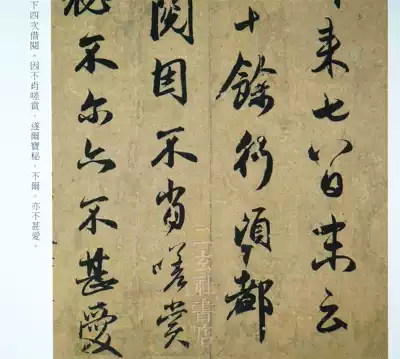 來七八日末云
十餘行頃都
閱因不肖嗟賞
秘不尔亦不甚愛
下四次借閱。因不肖嗟賞，遂爾寶秘。不爾，亦不甚愛。
二玄社書店